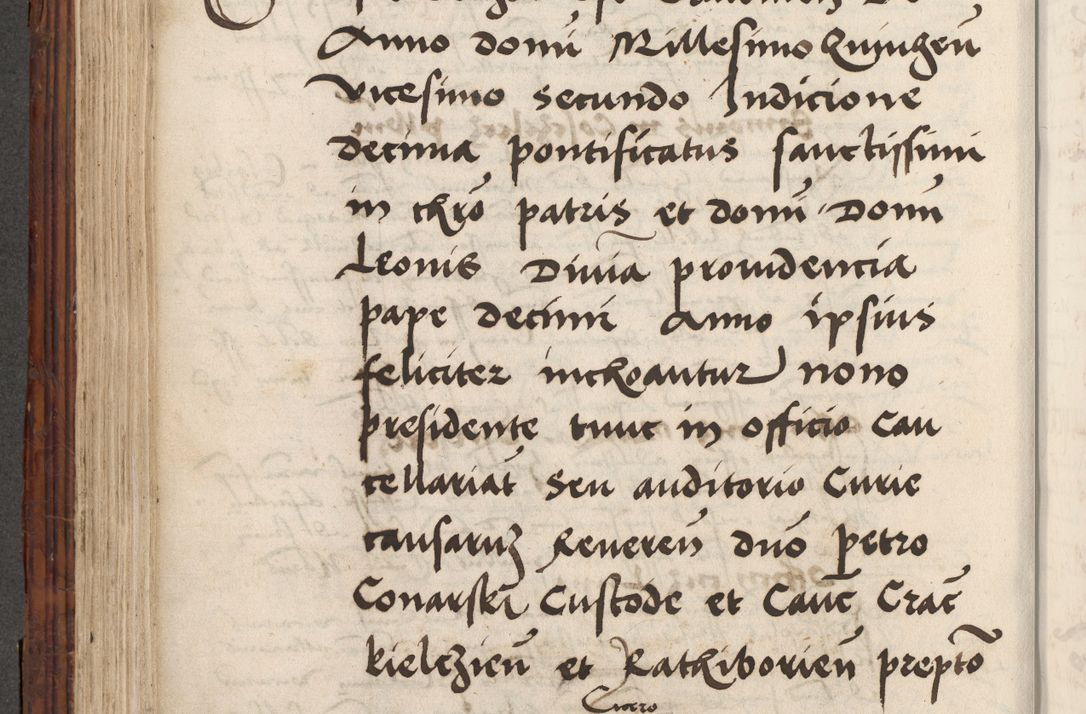 Anno domī Millesimo Quingeñ
vicesimo secundo Indicione
decima pontificatus sanctissimi
in chrō patris et domī Domī
Leonis Diuīa prouidencia
pape decimi Anno ipsius
feliciter inchoantur nono
presidente tunc in officio Can
cellariat̄ seu auditorio Curie
causaruȝ Reuereñ dnō petro
Conarski Custode et Canc̄ Crac̄
kielczieñ et Rathiborieñ prepto᷑
Cicero